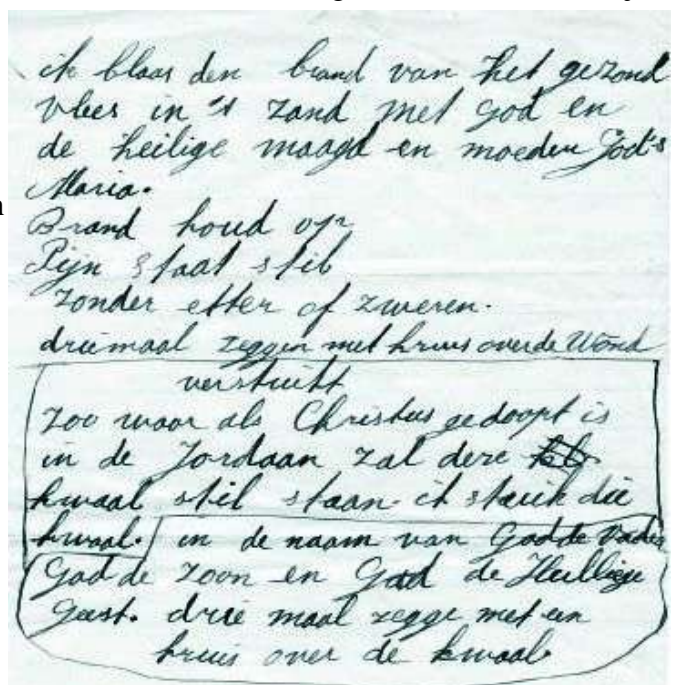 ik blaas den brand van het gezond
vlees in 's zand met god en
de heilige maagd en moeder God's
Maria.
Brand houd op
Pijn staat stil
zonder etter of zweren.
driemaal zeggen met kruis over de Wond
verstuikt
zoo waar als Christus gedoopt is
in de Jordaan zal deze
kwaal stil staan - ik stuik die
kwaal. in de naam van God de Vader
God de zoon en God de Heillige
Geest. drie maal zegge met een
kruis over de kwaal